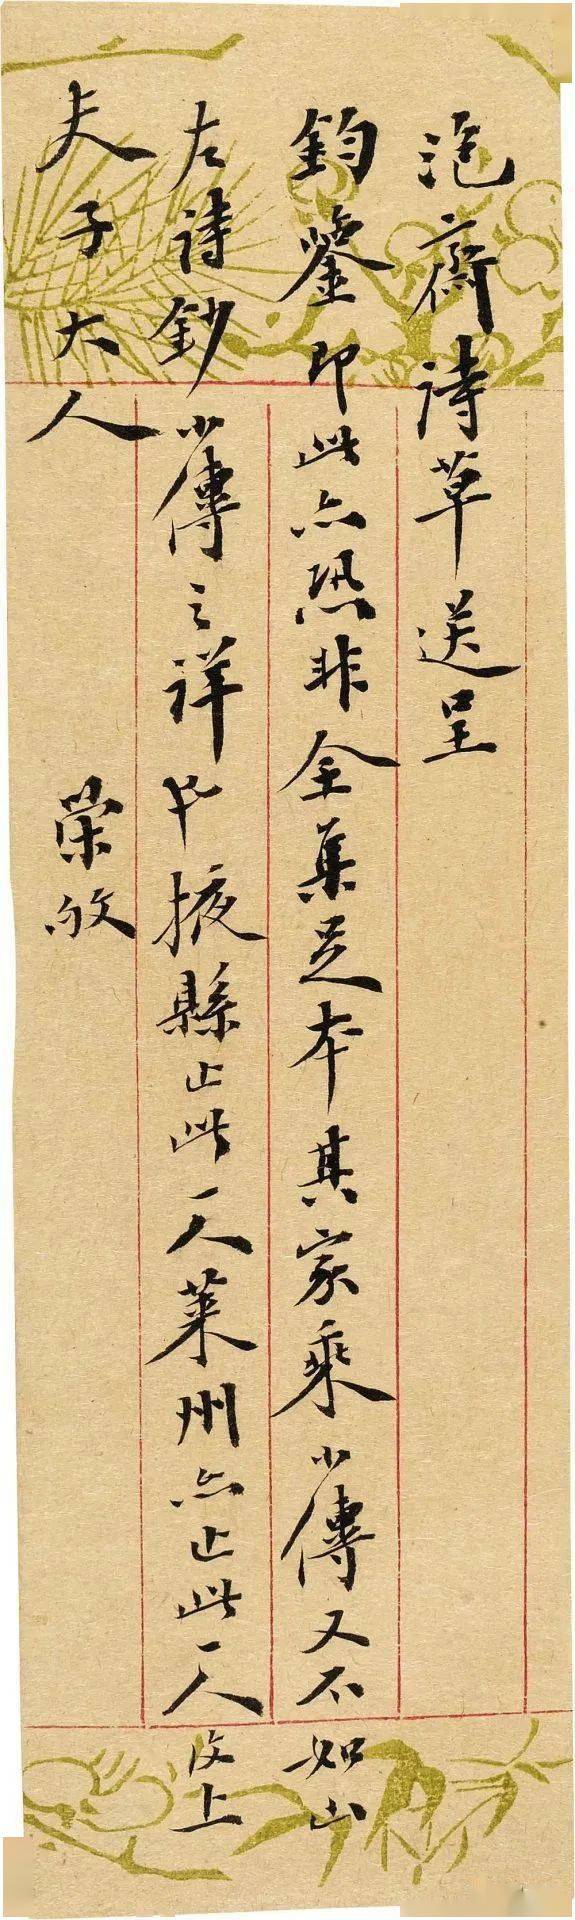 浥齋詩草送呈
鈞鑒即此亦恐非全集足本其家乘小傳又不如山
左詩鈔小傳之詳也掖縣止此一人萊州亦止此一人複上
夫子大人
榮敂